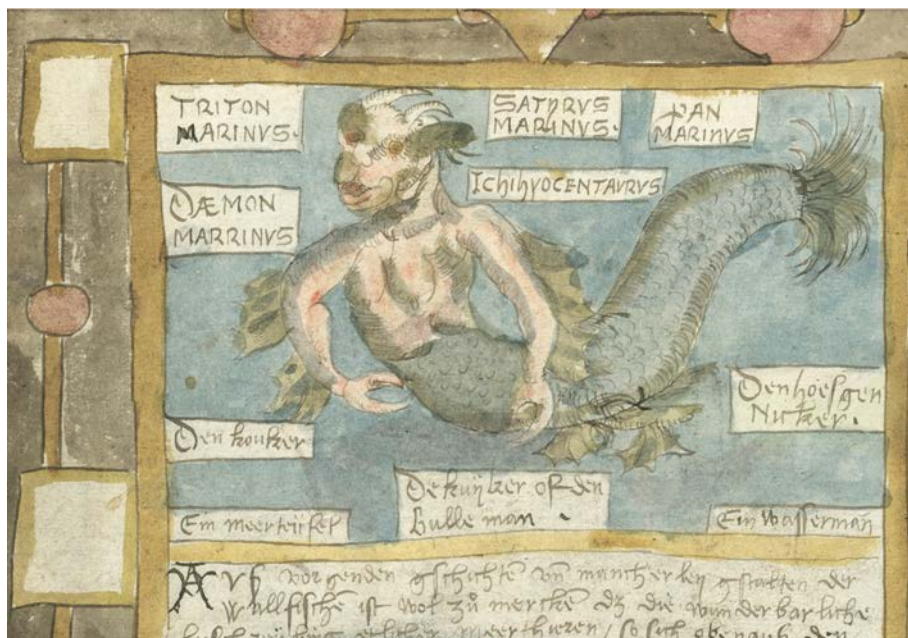 TRITON
MARINVS.
SATYRVS
MARINVS.
PAN
MARINVS
IchthyocentavrVS
DÆMON
MARRINVS
Den hoesgen
Nicker.
Den kouker
De kuijker of den
bulle man.
Ein meerteüfel
Ein wasserman
AVß vorgenden gschichtē vn̄ mancherleij gstalten der
Wallfische ist wol zů merckē dz die wunderbarliche
etlicher meerthieren / so sich